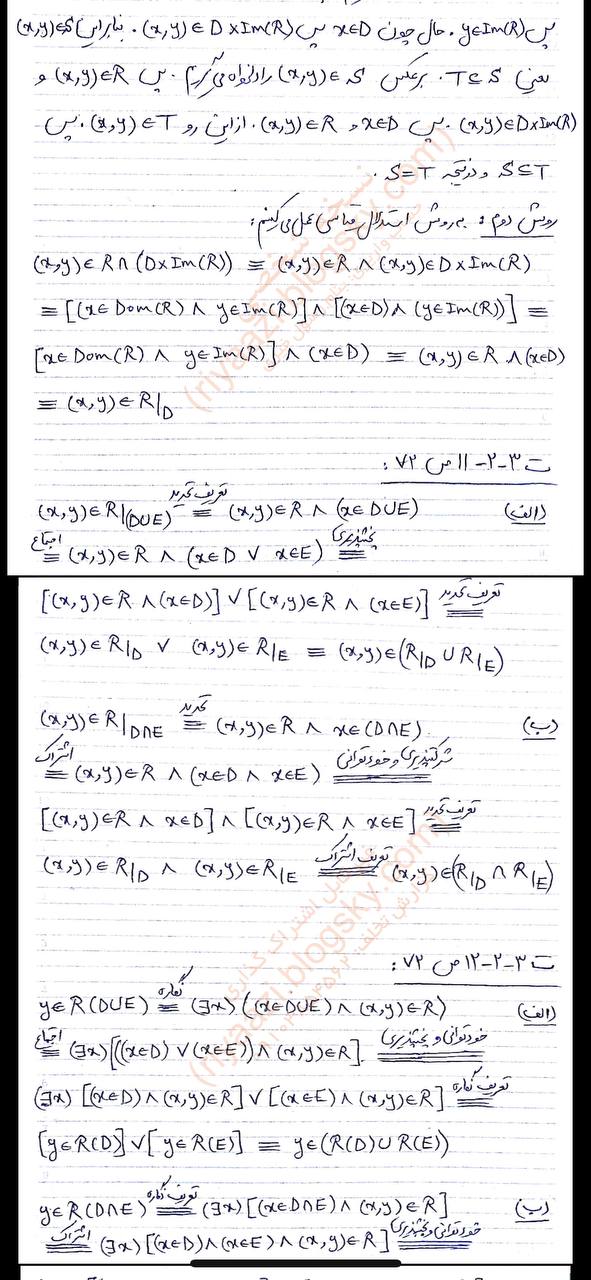 پس y∈Im(R). حال چون x∈D پس (x,y)∈D×Im(R). بنابراین (x,y)∈S
یعنی T⊆S. برعکس (x,y)∈S را دلخواه می‌گیریم. پس (x,y)∈R و
(x,y)∈D×Im(R). پس x∈D و (x,y)∈R. از این رو (x,y)∈T. پس
S⊆T و در نتیجه S=T.
روش دوم: به روش استدلال قیاسی عمل می‌کنیم:
(x,y)∈R∩(D×Im(R)) ≡ (x,y)∈R ∧ (x,y)∈D×Im(R)
≡ [(x∈Dom(R) ∧ y∈Im(R)] ∧ [(x∈D) ∧ (y∈Im(R))] ≡
[x∈Dom(R) ∧ y∈Im(R)] ∧ (x∈D) ≡ (x,y)∈R ∧ (x∈D)
≡ (x,y)∈R|D
ت ۳-۲-۱۱ ص ۷۲:
الف) (x,y)∈R|(D∪E) تعریف تحدید ≡ (x,y)∈R ∧ (x∈D∪E)
اجتماع ≡ (x,y)∈R ∧ (x∈D ∨ x∈E) پخشپذیری ≡
[(x,y)∈R ∧ (x∈D)] ∨ [(x,y)∈R ∧ (x∈E)] تعریف تحدید ≡
(x,y)∈R|D ∨ (x,y)∈R|E ≡ (x,y)∈(R|D ∪ R|E)
ب) (x,y)∈R|D∩E تحدید ≡ (x,y)∈R ∧ x∈(D∩E)
اشتراک ≡ (x,y)∈R ∧ (x∈D ∧ x∈E) شرکتپذیری و خودتوانی ≡
[(x,y)∈R ∧ x∈D] ∧ [(x,y)∈R ∧ x∈E] تعریف تحدید ≡
(x,y)∈R|D ∧ (x,y)∈R|E تعریف اشتراک ≡ (x,y)∈(R|D ∩ R|E)
ت ۳-۲-۱۲ ص ۷۲:
الف) y∈R(D∪E) نگاره ≡ (∃x)(x∈D∪E) ∧ (x,y)∈R)
اجتماع ≡ (∃x)[((x∈D) ∨ (x∈E)) ∧ (x,y)∈R] خودتوانی و پخشپذیری ≡
(∃x) [(x∈D) ∧ (x,y)∈R] ∨ [(x∈E) ∧ (x,y)∈R] تعریف نگاره ≡
[y∈R(D)] ∨ [y∈R(E)] ≡ y∈(R(D)∪R(E))
ب) y∈R(D∩E) تعریف نگاره ≡ (∃x)[(x∈D∩E) ∧ (x,y)∈R]
اشتراک ≡ (∃x)[(x∈D)∧(x∈E) ∧ (x,y)∈R] خودتوانی و پخشپذیری ≡
(riyaazi.blogsky.com)
(riyaazi.blogsky.com)